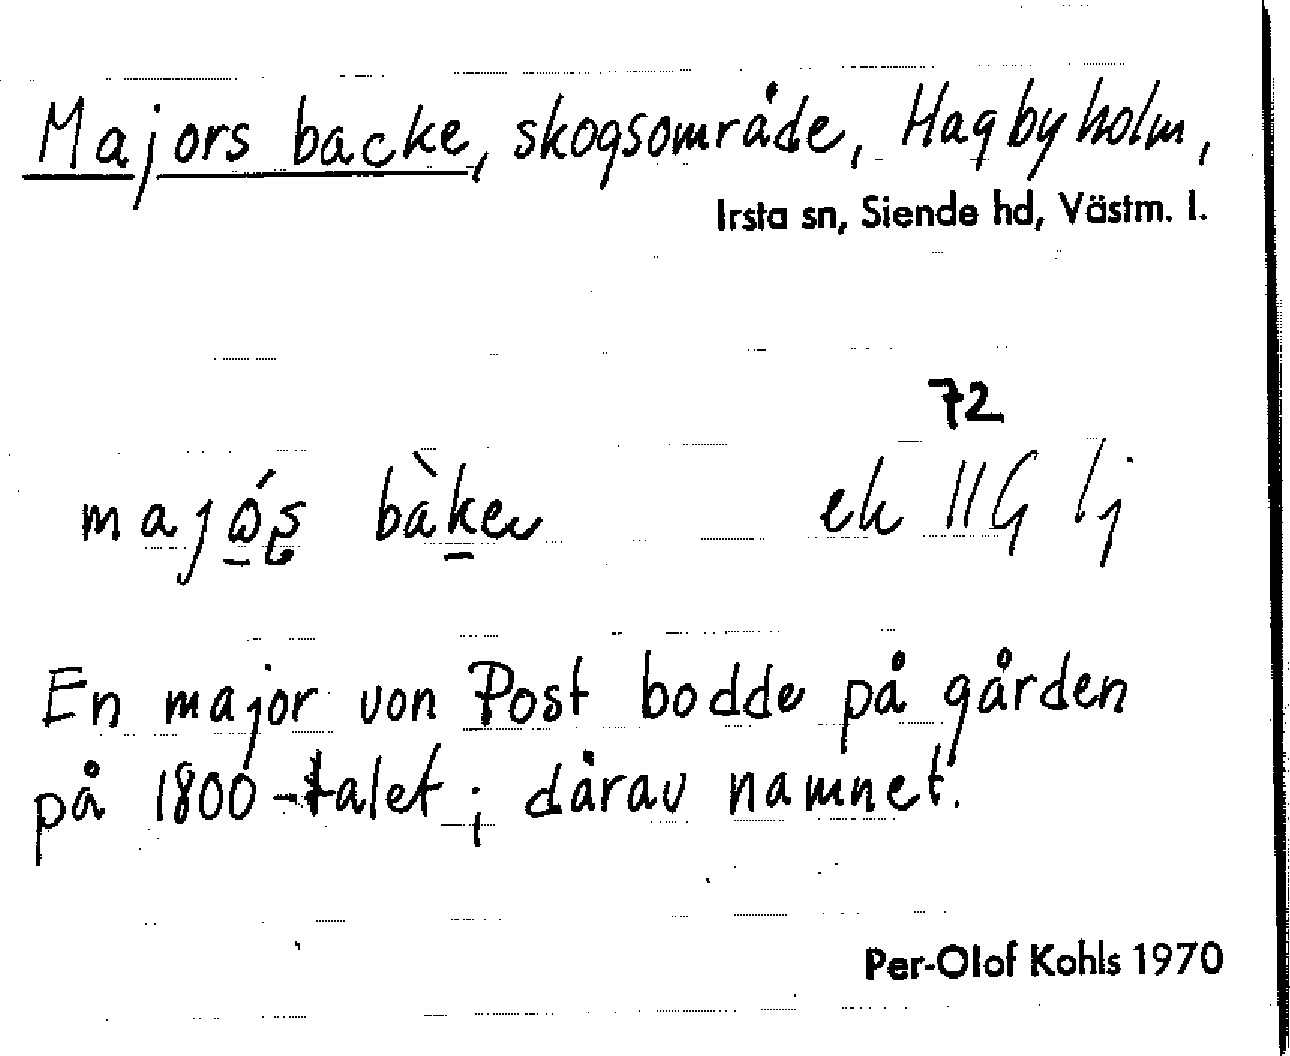 Majors backe, skogsområde, Hagbyholm,
Irsta sn, Siende hd, Västm. l.
72
majώ̱ʂ bàḵeν ek 11G lj
En major von Post bodde på gården
på 1800-talet; dårav namnet.
Per-Olof Kohls 1970